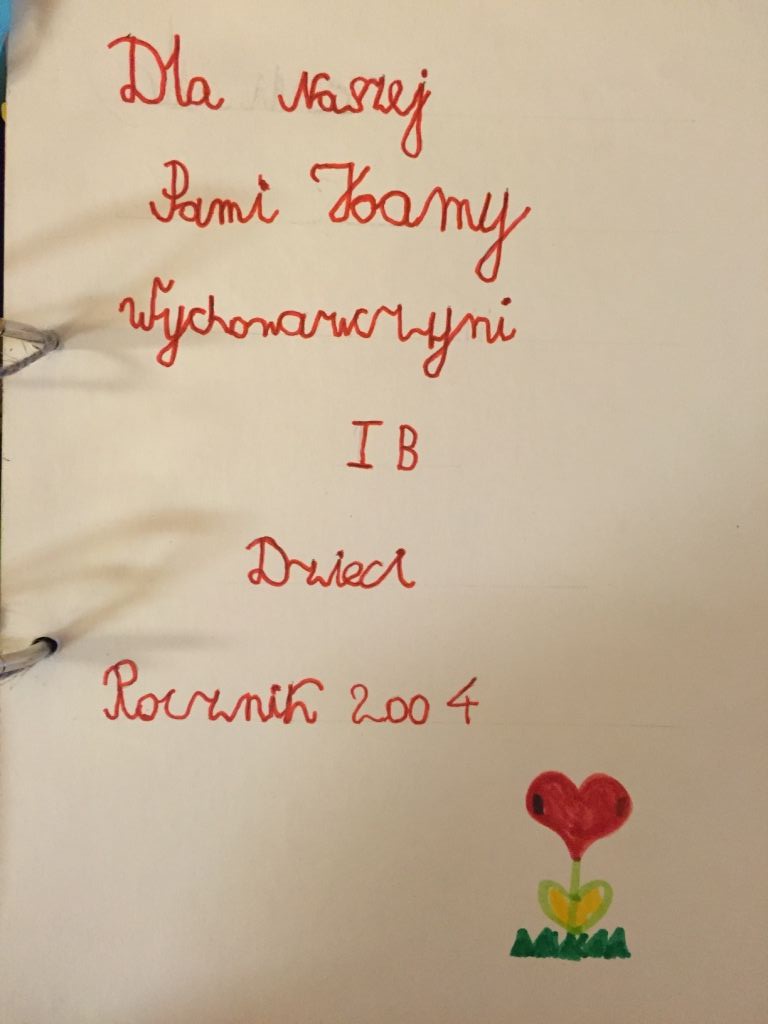 Dla Naszej
Pani Hamy
Wychowawczyni
I B
Dzieci
Rocznik 2004